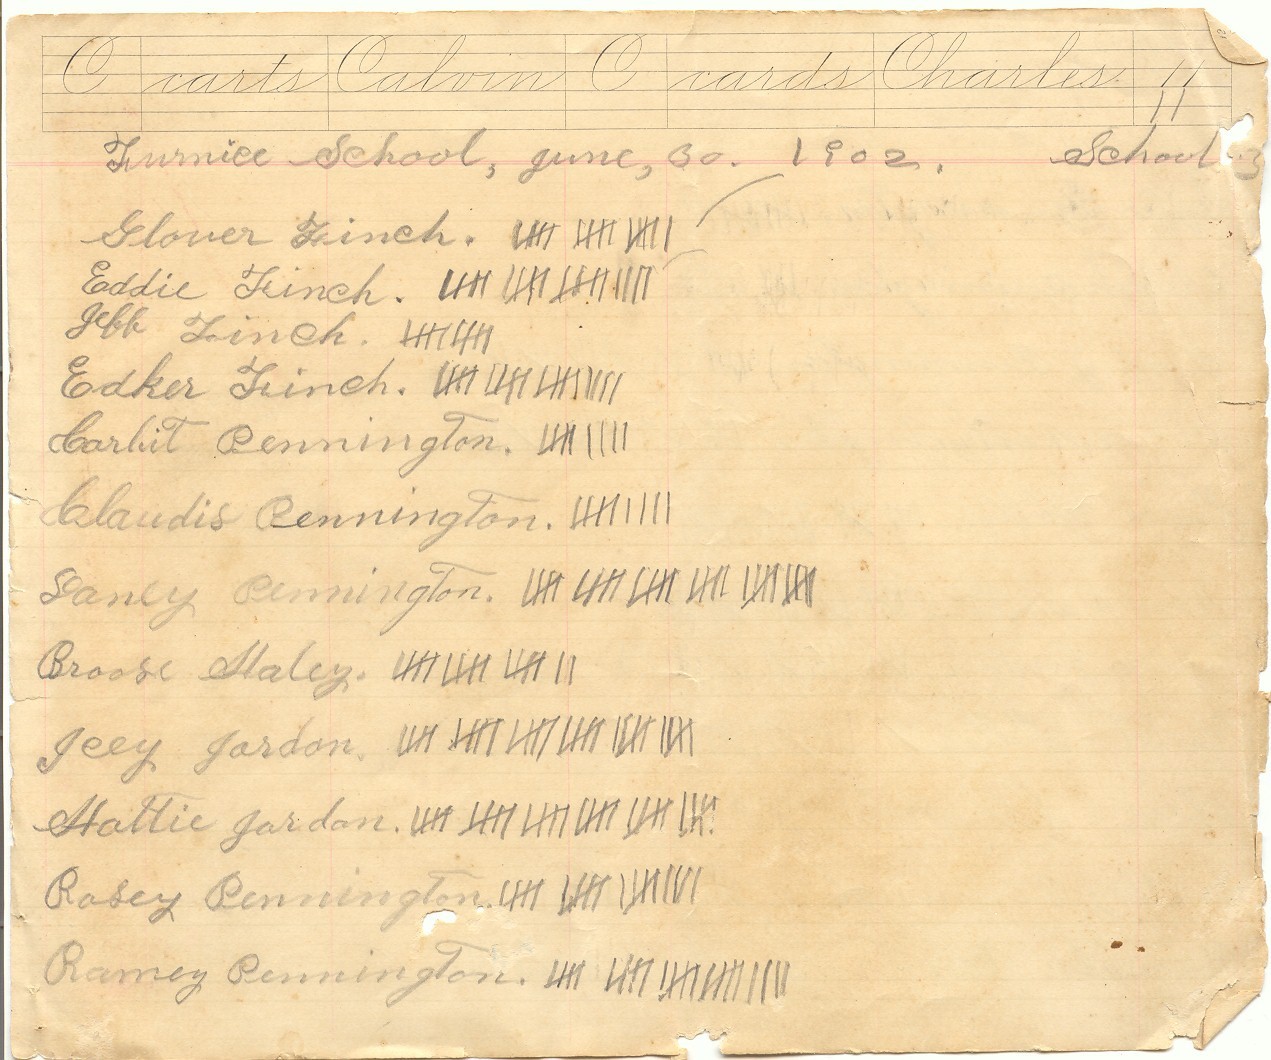 C carts Calvin C cards Charles
Furnice School, june, 30. 1902. School
Glover Finch.
Eddie Finch.
Jeff Finch.
Edker Finch.
Corbit Pennington.
Claudis Pennington.
Laney Pennington.
Broose Haley.
Icey Jordon.
Hattie Jordon.
Rosey Pennington.
Ramey Pennington.